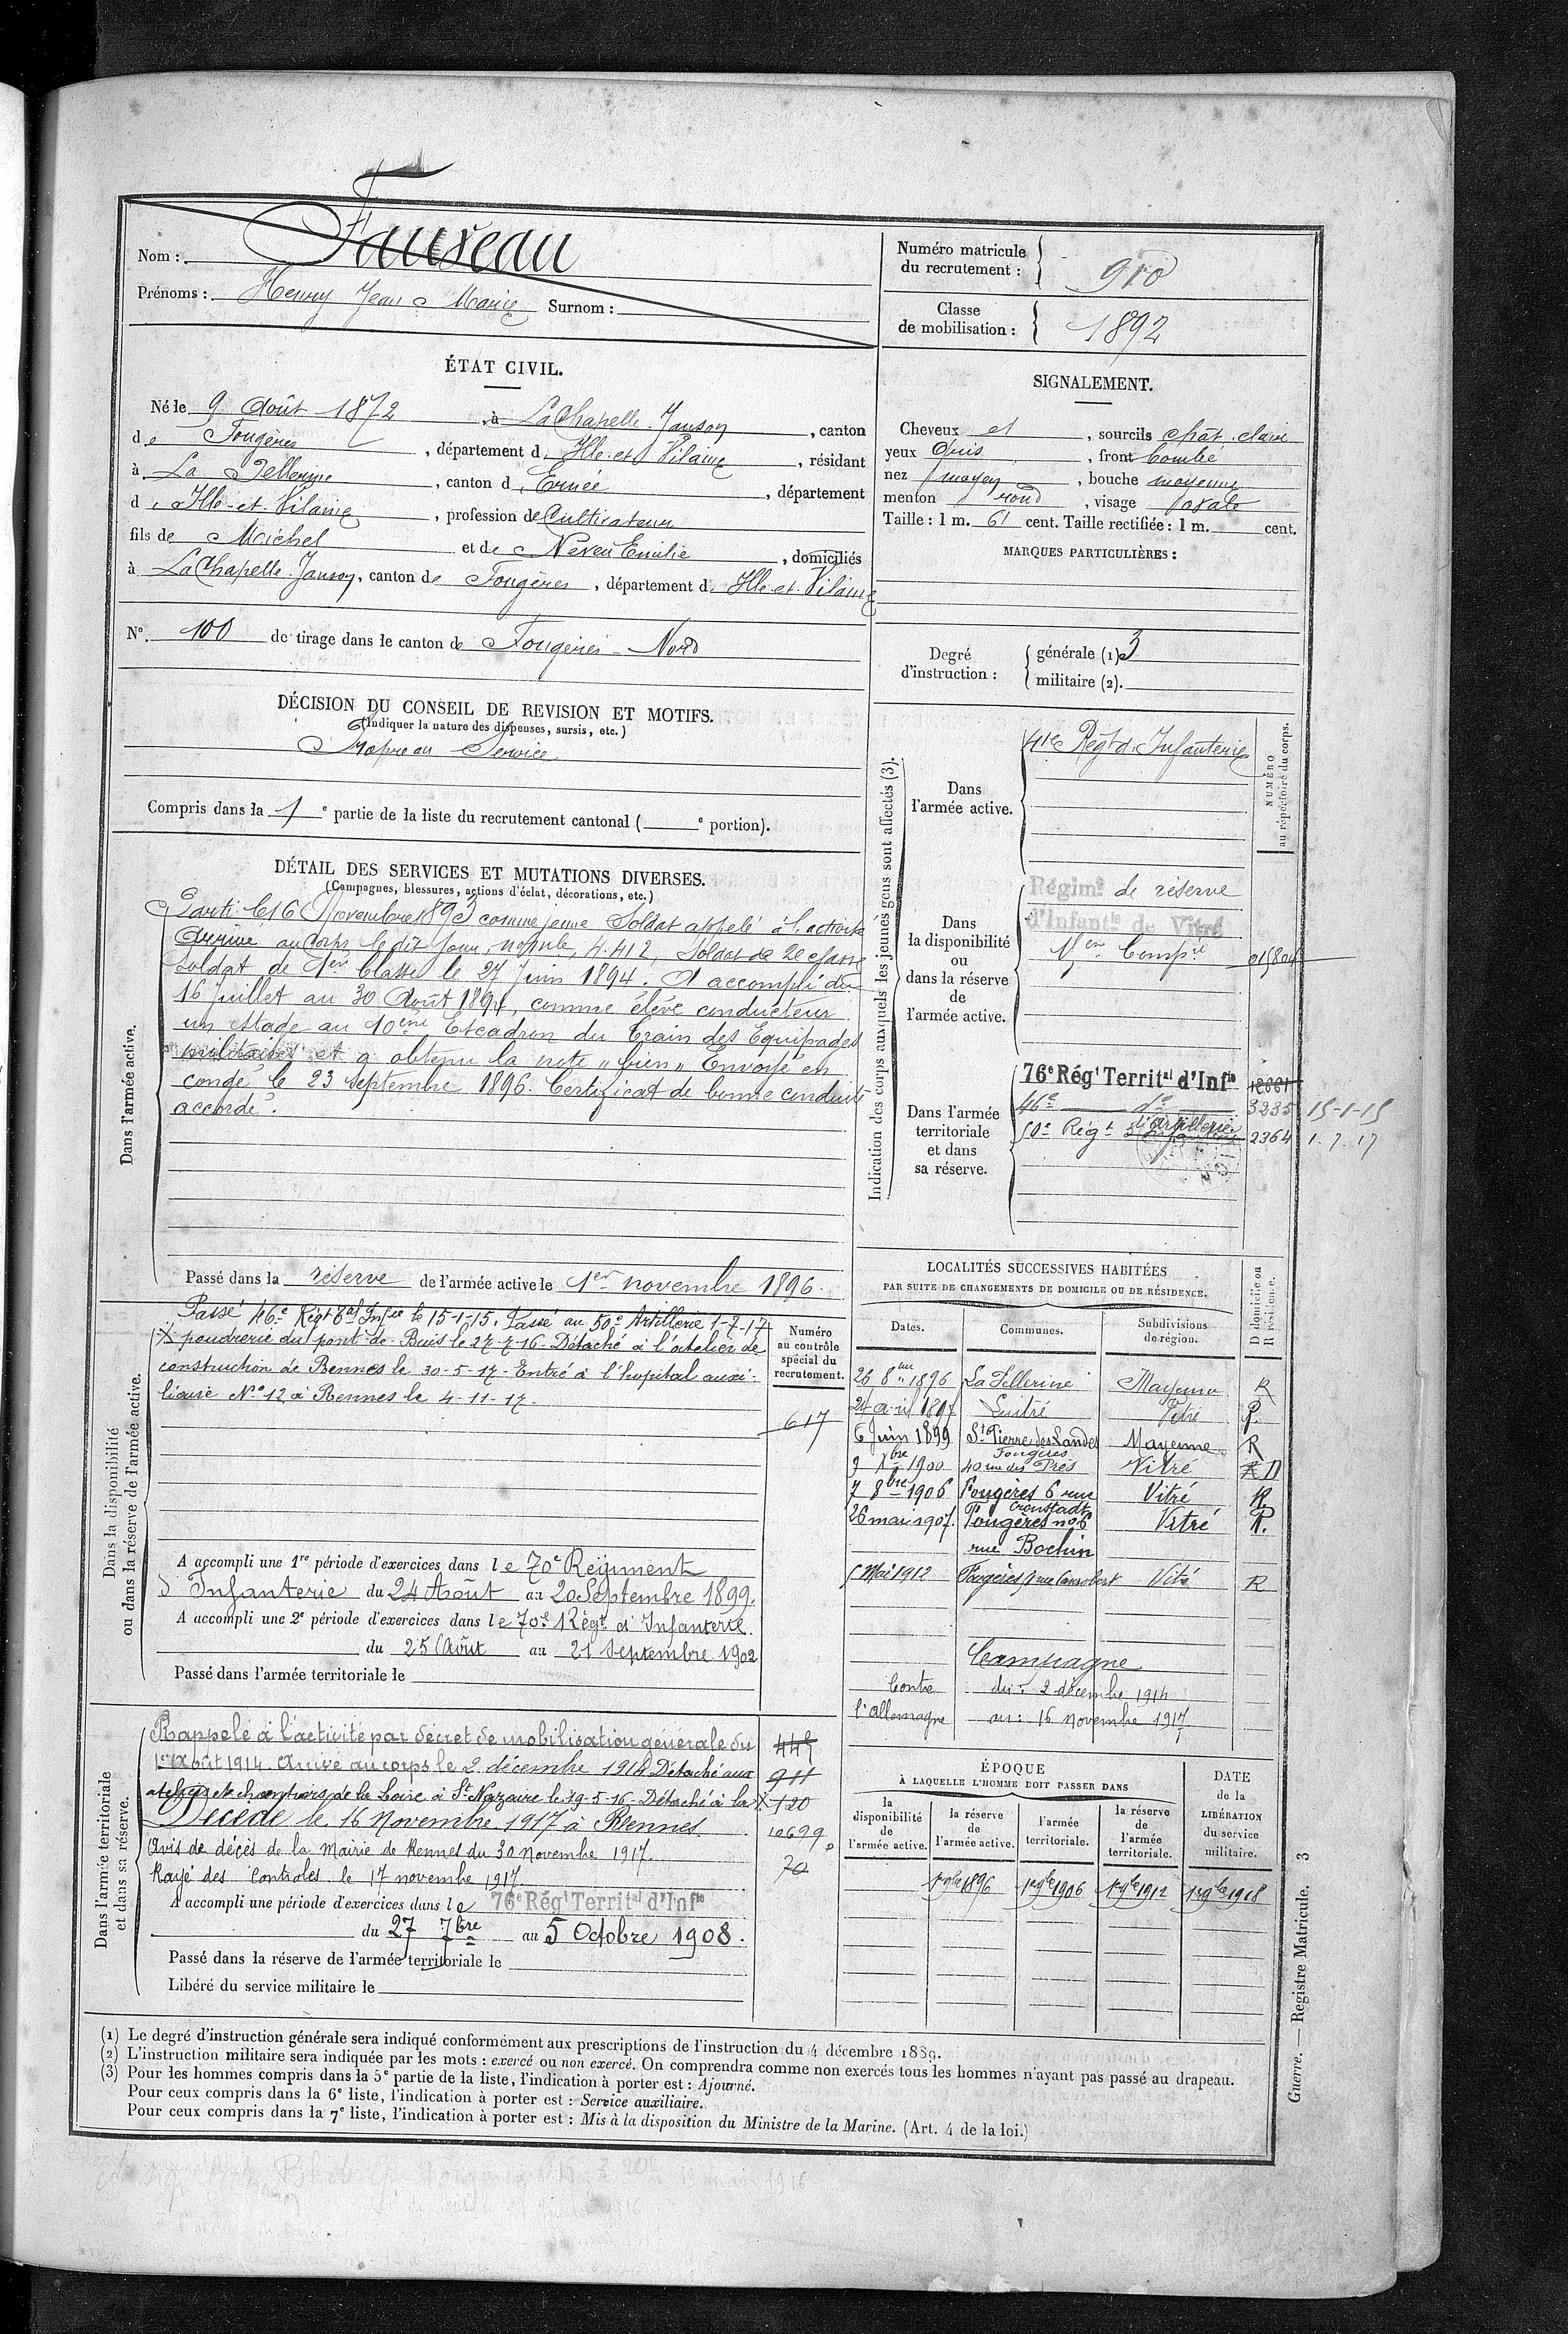 Nom : Fauveau
Prénoms : Henry Jean Marie Surnom :
Numéro matricule du recrutement : 910
Classe de mobilisation : 1892
ÉTAT CIVIL.
Né le 9 Août 1872, à La Chapelle-Janson, canton
de Fougères, département d Ille-et-Vilaine, résidant
à La Pellerine, canton d Ernée, département
d Ille-et-Vilaine, profession de Cultivateur
fils de Michel et de Neveu Emilie, domiciliés
à La Chapelle-Janson, canton de Fougères, département d Ille-et-Vilaine
N° 100 de tirage dans le canton de Fougères-Nord
SIGNALEMENT.
Cheveux et, sourcils chât. clair
yeux gris, front bombé
nez moyen, bouche moyenne
menton rond, visage ovale
Taille : 1 m. 61 cent. Taille rectifiée : 1 m. cent.
MARQUES PARTICULIÈRES :
Degré d'instruction : générale (1) 3
militaire (2).
DÉCISION DU CONSEIL DE REVISION ET MOTIFS.
(Indiquer la nature des dispenses, sursis, etc.)
Propre au Service
Compris dans la 1e partie de la liste du recrutement cantonal ( e portion).
DÉTAIL DES SERVICES ET MUTATIONS DIVERSES.
(Campagnes, blessures, actions d'éclat, décorations, etc.)
Dans l'armée active.
Parti le 16 Novembre 1893 comme jeune Soldat appelé à l'activité
Arrivé au Corps le dit jour, n° mle 4.412, Soldat de 2e classe
Soldat de 1ère Classe le 27 Juin 1894. A accompli du
16 Juillet au 30 Août 1894, comme élève conducteur
un stade au 10ème Escadron du Train des Equipages
militaires et a obtenu la note "bien" Envoyé en
congé le 23 septembre 1896. Certificat de bonne conduite
accordé.
Passé dans la réserve de l'armée active le 1er novembre 1896.
Indication des corps auxquels les jeunes gens sont affectés (3).
NUMÉRO au répertoire du corps.
Dans l'armée active.
41e Régt d'Infanterie
Dans la disponibilité ou dans la réserve de l'armée active.
Régimt de réserve
d'Infantie de Vitré
Dans l'armée territoriale et dans sa réserve.
76e Régt Territal d'Infie
46e do 3235 15-1-15
50e Régt d'artillerie 2364 1.7.17
Dans la disponibilité ou dans la réserve de l'armée active.
Passé 46e Régt Tal Infie le 15-1-15. Passé au 50e Artillerie 1-7-17
X poudrerie du pont-de-Buis le 27-7-16 - Détaché à l'atelier de
construction de Rennes le 30-5-17 - Entré à l'hopital auxi-
liaire N° 12 à Rennes le 4-11-17.
Numéro au contrôle spécial du recrutement.
617
A accompli une 1re période d'exercices dans le 70e Régiment
d'Infanterie du 24 Août au 20 Septembre 1899.
A accompli une 2e période d'exercices dans le 70e Régt d'Infanterie.
du 25 Août au 21 Septembre 1902
Passé dans l'armée territoriale le
LOCALITÉS SUCCESSIVES HABITÉES
PAR SUITE DE CHANGEMENTS DE DOMICILE OU DE RÉSIDENCE.
D domicile ou R résidence.
Dates. Communes. Subdivisions de région.
26 8bre 1896 La Pellerine Mayenne R
24 avril 1897 Luitré Vitré R
6 Juin 1899 St Pierre des Landes Mayenne R
1900 Fougères 40 rue des Prés Vitré D
7 8bre 1906 Fougères 6 rue Cronstadt Vitré R.
26 mai 1907. Fougères n° 6 rue Bochin Vitré R.
5 Mai 1912 Fougères rue Canrobert Vitré R
Campagne
Contre l'Allemagne
du : 2 décembre 1914
au : 16 novembre 1917
Dans l'armée territoriale et dans sa réserve.
Rappelé à l'activité par décret de mobilisation générale du
1er Août 1914. Arrivé au corps le 2 décembre 1914 Détaché aux
ateliers et chantiers de la Loire à St Nazaire le 19-5-16 - Détaché à la X
Décédé le 16 Novembre 1917 à Rennes.
Avis de décès de la Mairie de Rennes du 30 novembre 1917.
Rayé des Controles le 17 novembre 1917.
911
120
10699
70
A accompli une période d'exercices dans le 76e Régt Territal d'Infie
du 27 7bre au 5 Octobre 1908.
Passé dans la réserve de l'armée territoriale le
Libéré du service militaire le
ÉPOQUE
À LAQUELLE L'HOMME DOIT PASSER DANS
la disponibilité de l'armée active.
la réserve de l'armée active.
l'armée territoriale.
la réserve de l'armée territoriale.
DATE de la LIBÉRATION du service militaire.
1er 9bre 1896 1er 9bre 1906 1er 9bre 1912 1er 9bre 1918
(1) Le degré d'instruction générale sera indiqué conformément aux prescriptions de l'instruction du 4 décembre 1889.
(2) L'instruction militaire sera indiquée par les mots : exercé ou non exercé. On comprendra comme non exercés tous les hommes n'ayant pas passé au drapeau.
(3) Pour les hommes compris dans la 5e partie de la liste, l'indication à porter est : Ajourné.
Pour ceux compris dans la 6e liste, l'indication à porter est : Service auxiliaire.
Pour ceux compris dans la 7e liste, l'indication à porter est : Mis à la disposition du Ministre de la Marine. (Art. 4 de la loi.)
Guerre. — Registre Matricule. 3